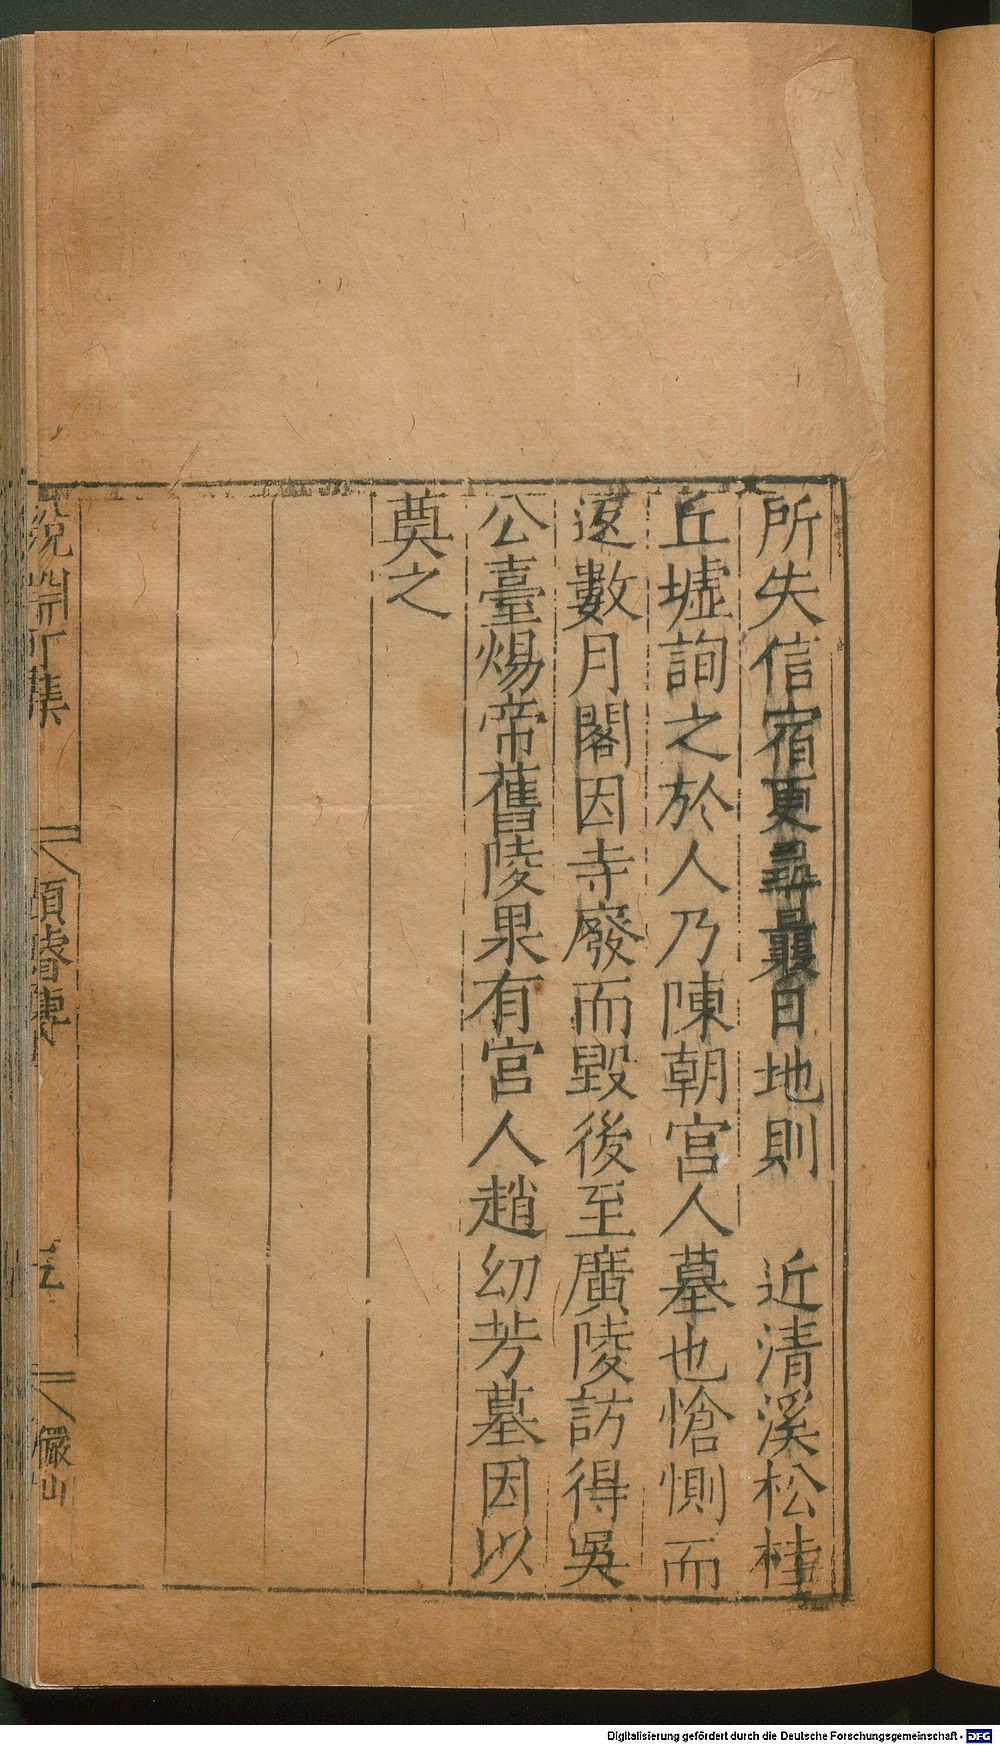 所失信宿更尋曩日地則　近清溪松桂
丘墟詢之於人乃陳朝宮人墓也愴惻而
返數月閣因寺廢而毀後至廣陵訪得吳
公臺煬帝舊陵果有宮人趙幼芳墓因以
奠之
說淵丁集
顏濬傳
五
儼山
Digitalisierung gefördert durch die Deutsche Forschungsgemeinschaft - DFG